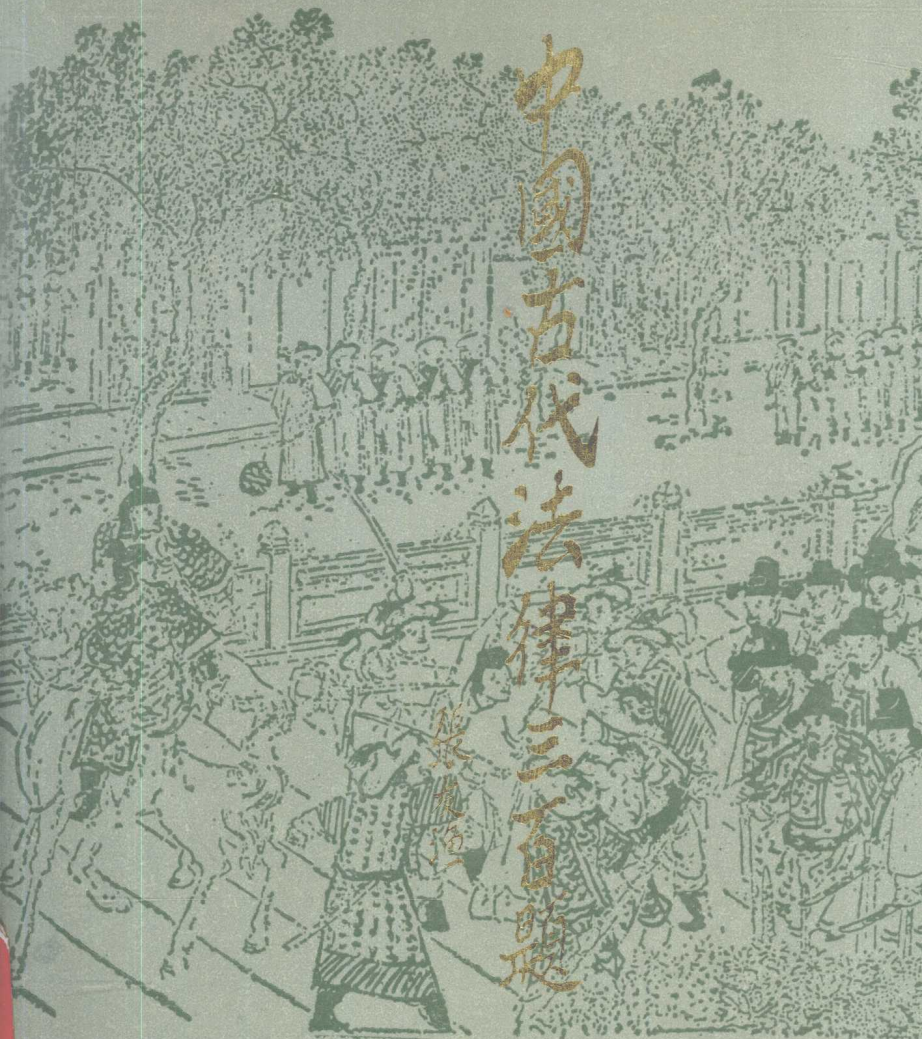 中國古代法律三百題
張友漁